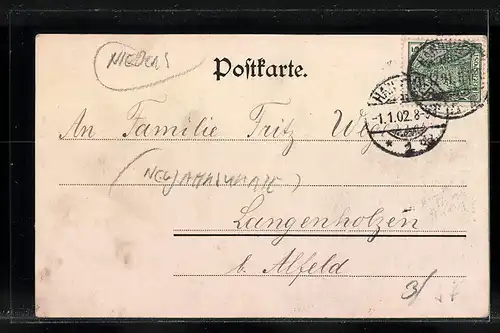 NIEDERS
Postkarte.
1.1.02.8-9
An Familie Fritz
(NEUJAHRSKARTE)
Langenholzen
b. Alfeld
3/